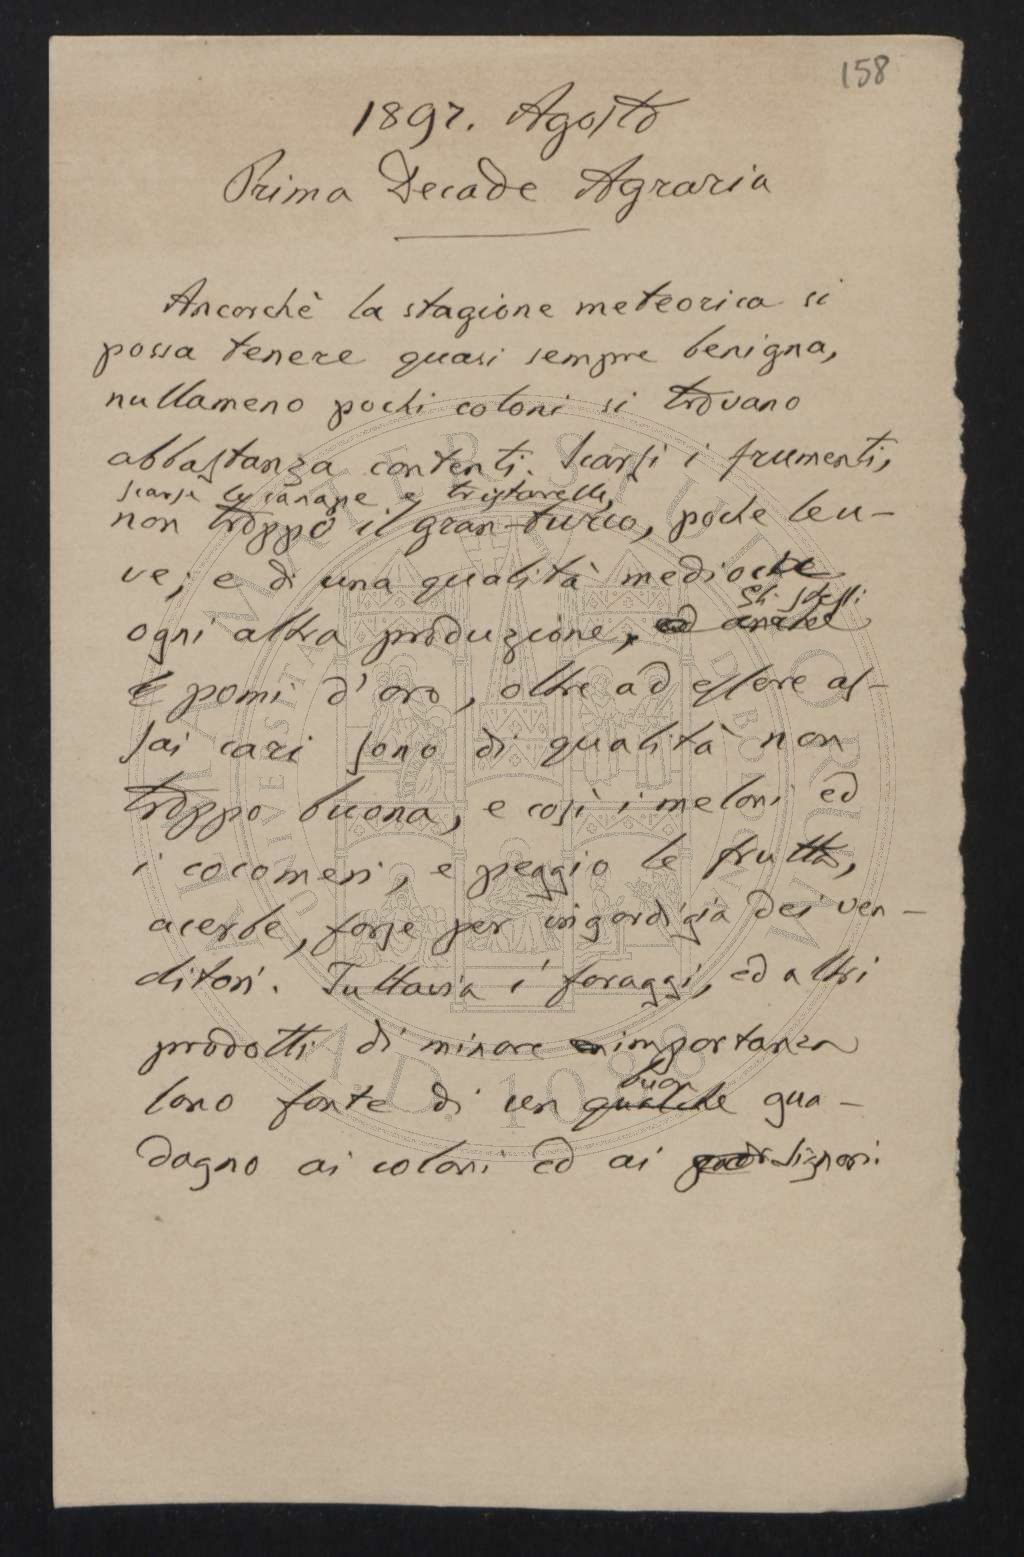 158
1897. Agosto
Prima Decade Agraria
Ancorchè la stagione meteorica si
possa tenere quasi sempre benigna,
nullameno pochi coloni si trovano
abbastanza contenti. Scarsi i frumenti,
scarse le canape e tristarelle,
non troppo il gran-turco, poche le u-
ve; e di una qualità mediocre
gli stessi
ogni altra produzione, ed anche
pomi d'oro, oltre ad essere as-
sai cari sono di qualità non
troppo buona, e così i meloni ed
i cocomeri, e peggio le frutta,
acerbe, forse per ingordigia dei ven-
ditori. Tuttavia i foraggi, ed altri
prodotti di minore importanza
buon
sono fonte di un qualche gua-
dagno ai coloni ed ai signori.
ALMA MATER STUDIORUM
A.D. 1088